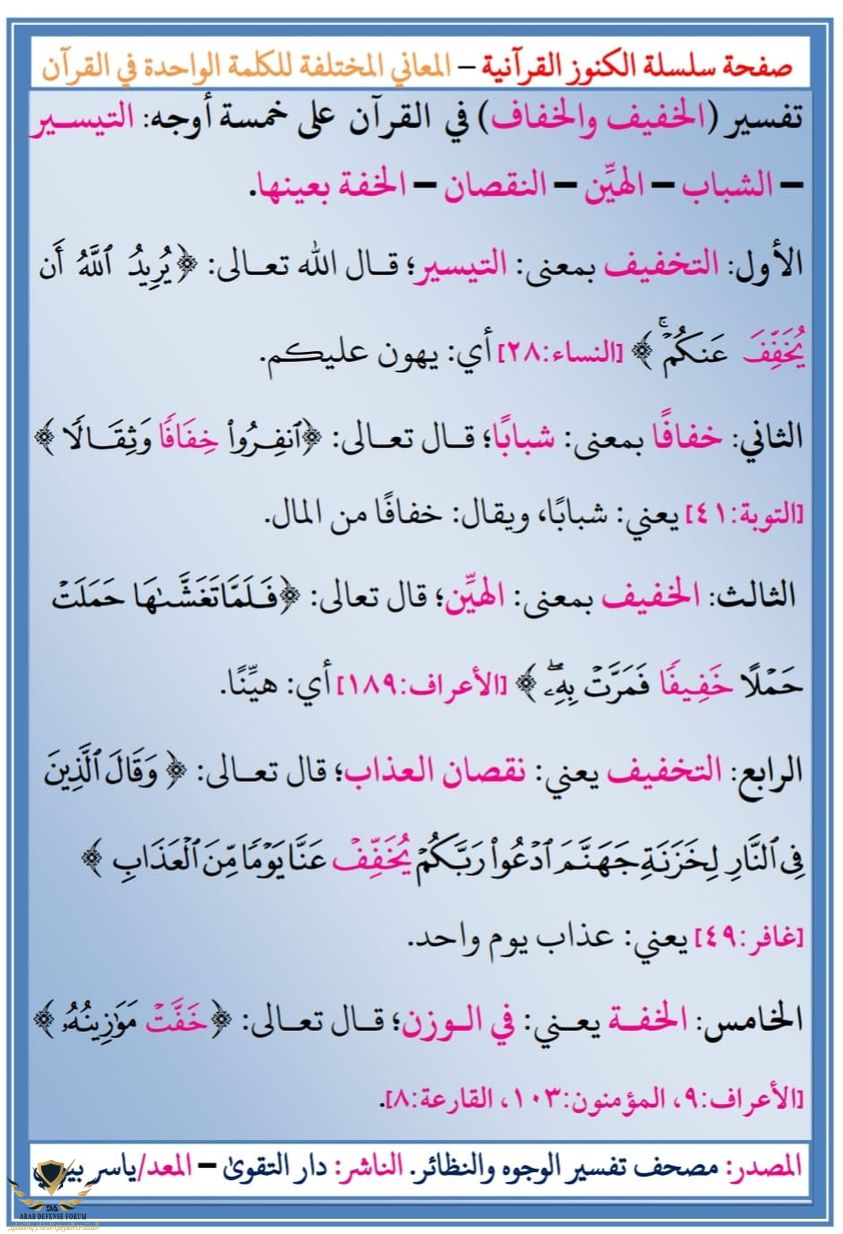 صفحة سلسلة الكنوز القرآنية – المعاني المختلفة للكلمة الواحدة في القرآن
تفسير (الخفيف والخفاف) في القرآن على خمسة أوجه: التيسير
– الشباب – الهيِّن – النقصان – الخفة بعينها.
الأول: التخفيف بمعنى: التيسير؛ قال الله تعالى: ﴿يُرِيدُ ٱللَّهُ أَن
يُخَفِّفَ عَنكُمْۚ﴾ [النساء:٢٨] أي: يهون عليكم.
الثاني: خفافًا بمعنى: شبابًا؛ قال تعالى: ﴿ٱنفِرُواْ خِفَافًا وَثِقَالًا﴾
[التوبة:٤١] يعني: شبابًا، ويقال: خفافًا من المال.
الثالث: الخفيف بمعنى: الهيِّن؛ قال تعالى: ﴿فَلَمَّا تَغَشَّىٰهَا حَمَلَتْ
حَمْلًا خَفِيفًا فَمَرَّتْ بِهِۦۖ﴾ [الأعراف:١٨٩] أي: هيِّنًا.
الرابع: التخفيف يعني: نقصان العذاب؛ قال تعالى: ﴿وَقَالَ ٱلَّذِينَ
فِى ٱلنَّارِ لِخَزَنَةِ جَهَنَّمَ ٱدْعُواْ رَبَّكُمْ يُخَفِّفْ عَنَّا يَوْمًا مِّنَ ٱلْعَذَابِ﴾
[غافر:٤٩] يعني: عذاب يوم واحد.
الخامس: الخفة يعني: في الوزن؛ قال تعالى: ﴿خَفَّتْ مَوَٰزِينُهُۥ﴾
[الأعراف:٩، المؤمنون:١٠٣، القارعة:٨].
المصدر: مصحف تفسير الوجوه والنظائر. الناشر: دار التقوىٰ – المعد/ياسر
ARAB DEFENSE FORUM